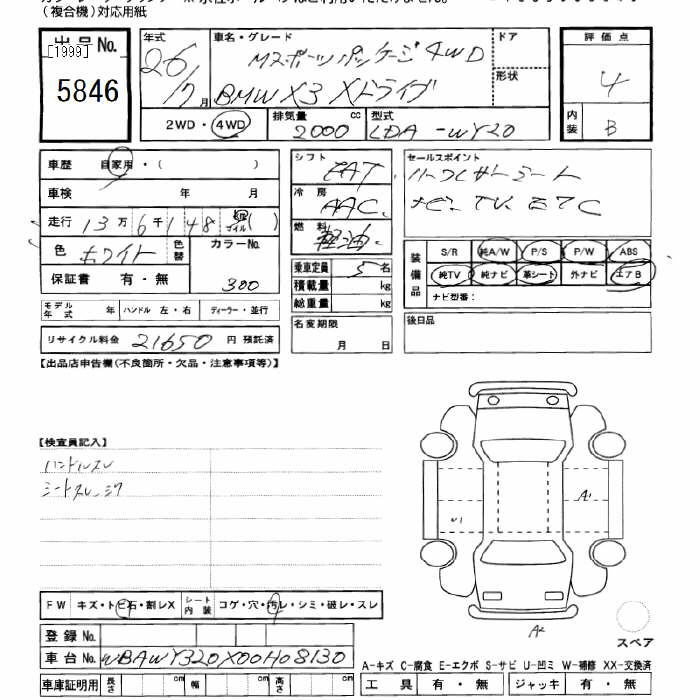 (複合機)対応用紙
出品No.
[1999]
5846
年式 26/7月
車名・グレード Mスポーツパッケージ 4WD
BMW X3 Xドライブ
ドア
形状
評価点 4
内装 B
2WD・4WD
排気量 2000 cc
型式 LDA-WY20
車歴 自家用・( )
車検 年 月
走行 13万6千148
マイル
色 ホワイト
色替
カラーNo. 300
保証書 有・無
シフト FAT
冷房 AAC
燃料 軽油
乗車定員 5名
積載量 kg
総重量 kg
名変期限
月 日
セールスポイント
ハーフレザーシート
ナビ、TV、ETC
装備品
S/R 純A/W P/S P/W ABS
純TV 純ナビ 革シート 外ナビ エアB
ナビ型番:
後日品
モデル年式 年 ハンドル 左・右 ディーラー・並行
リサイクル料金 21650 円 預託済
【出品店申告欄(不良箇所・欠品・注意事項等)】
【検査員記入】
ハンドルスレ
シートスレ、シワ
A1
A2
FW キズ・トビ石・割レX
シート内装 コゲ・穴・汚レ・シミ・破レ・スレ
登録No.
車台No. WBAWY320X00H08130
スペア
A-キズ C-腐食 E-エクボ S-サビ U-凹ミ W-補修 XX-交換済
車庫証明用 長さ cm 幅 cm 高さ cm
工具 有・無 ジャッキ 有・無